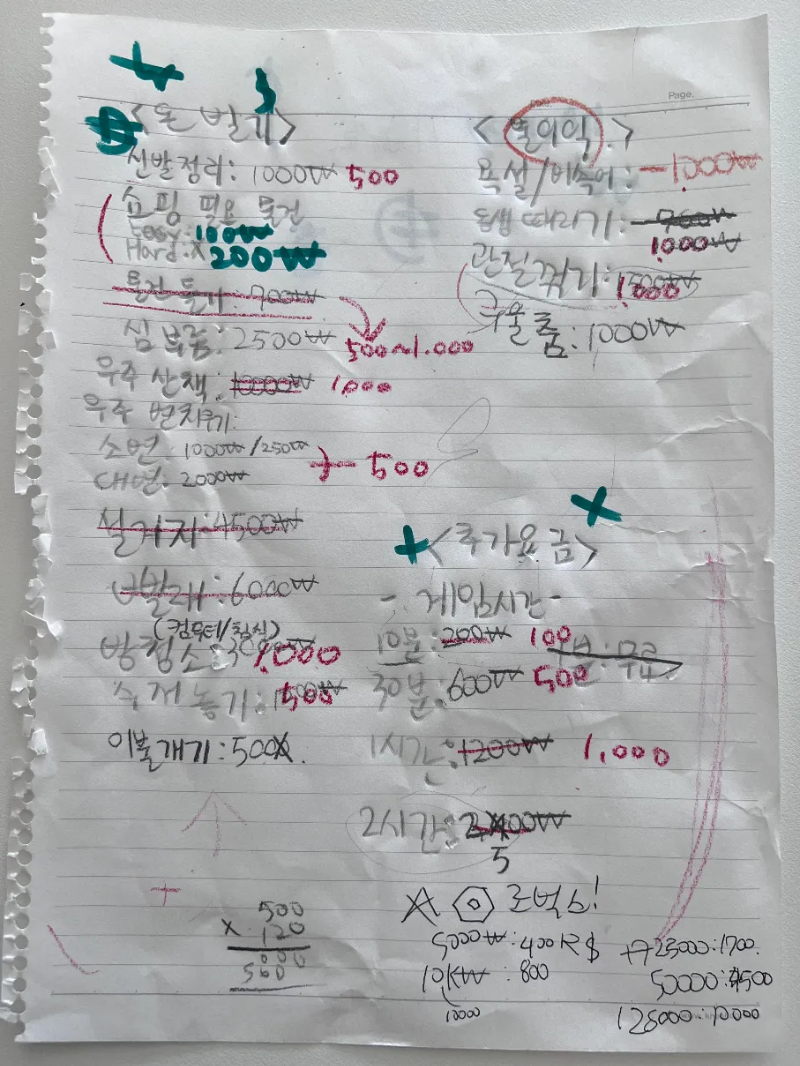 Page.
<돈 벌기>
신발정리: 1000₩ 500
쇼핑 필요 물건
Easy: 100₩
Hard: X 200₩
물건 들기: 900₩
심부름: 2500₩ 500~1.000
우주 산책: 10000₩ 1,000
우주 변치우기:
소변 1000₩/250₩
대변: 2000₩ 500
설거지: 4500₩
빨래: 6000₩
(컴퓨터/침실)
방청소: 1.000
수저놓기: 500
이불개기: 500
500
x 120
<불이익.>
욕설/비속어: -1,000₩
동생 때리기: 700₩
1000₩
관절꺾기: 1,000
우울 춤: 1000₩
<추가요금>
- 게임시간 -
10분: 200₩ 100
분: 무료
30분: 600₩ 500
1시간: 1200₩ 1,000
2시간: 2400₩
5
로벅스!
5000₩: 400R$
10K₩: 800
10000
25000: 1700.
50000: 4500
125000: 10000